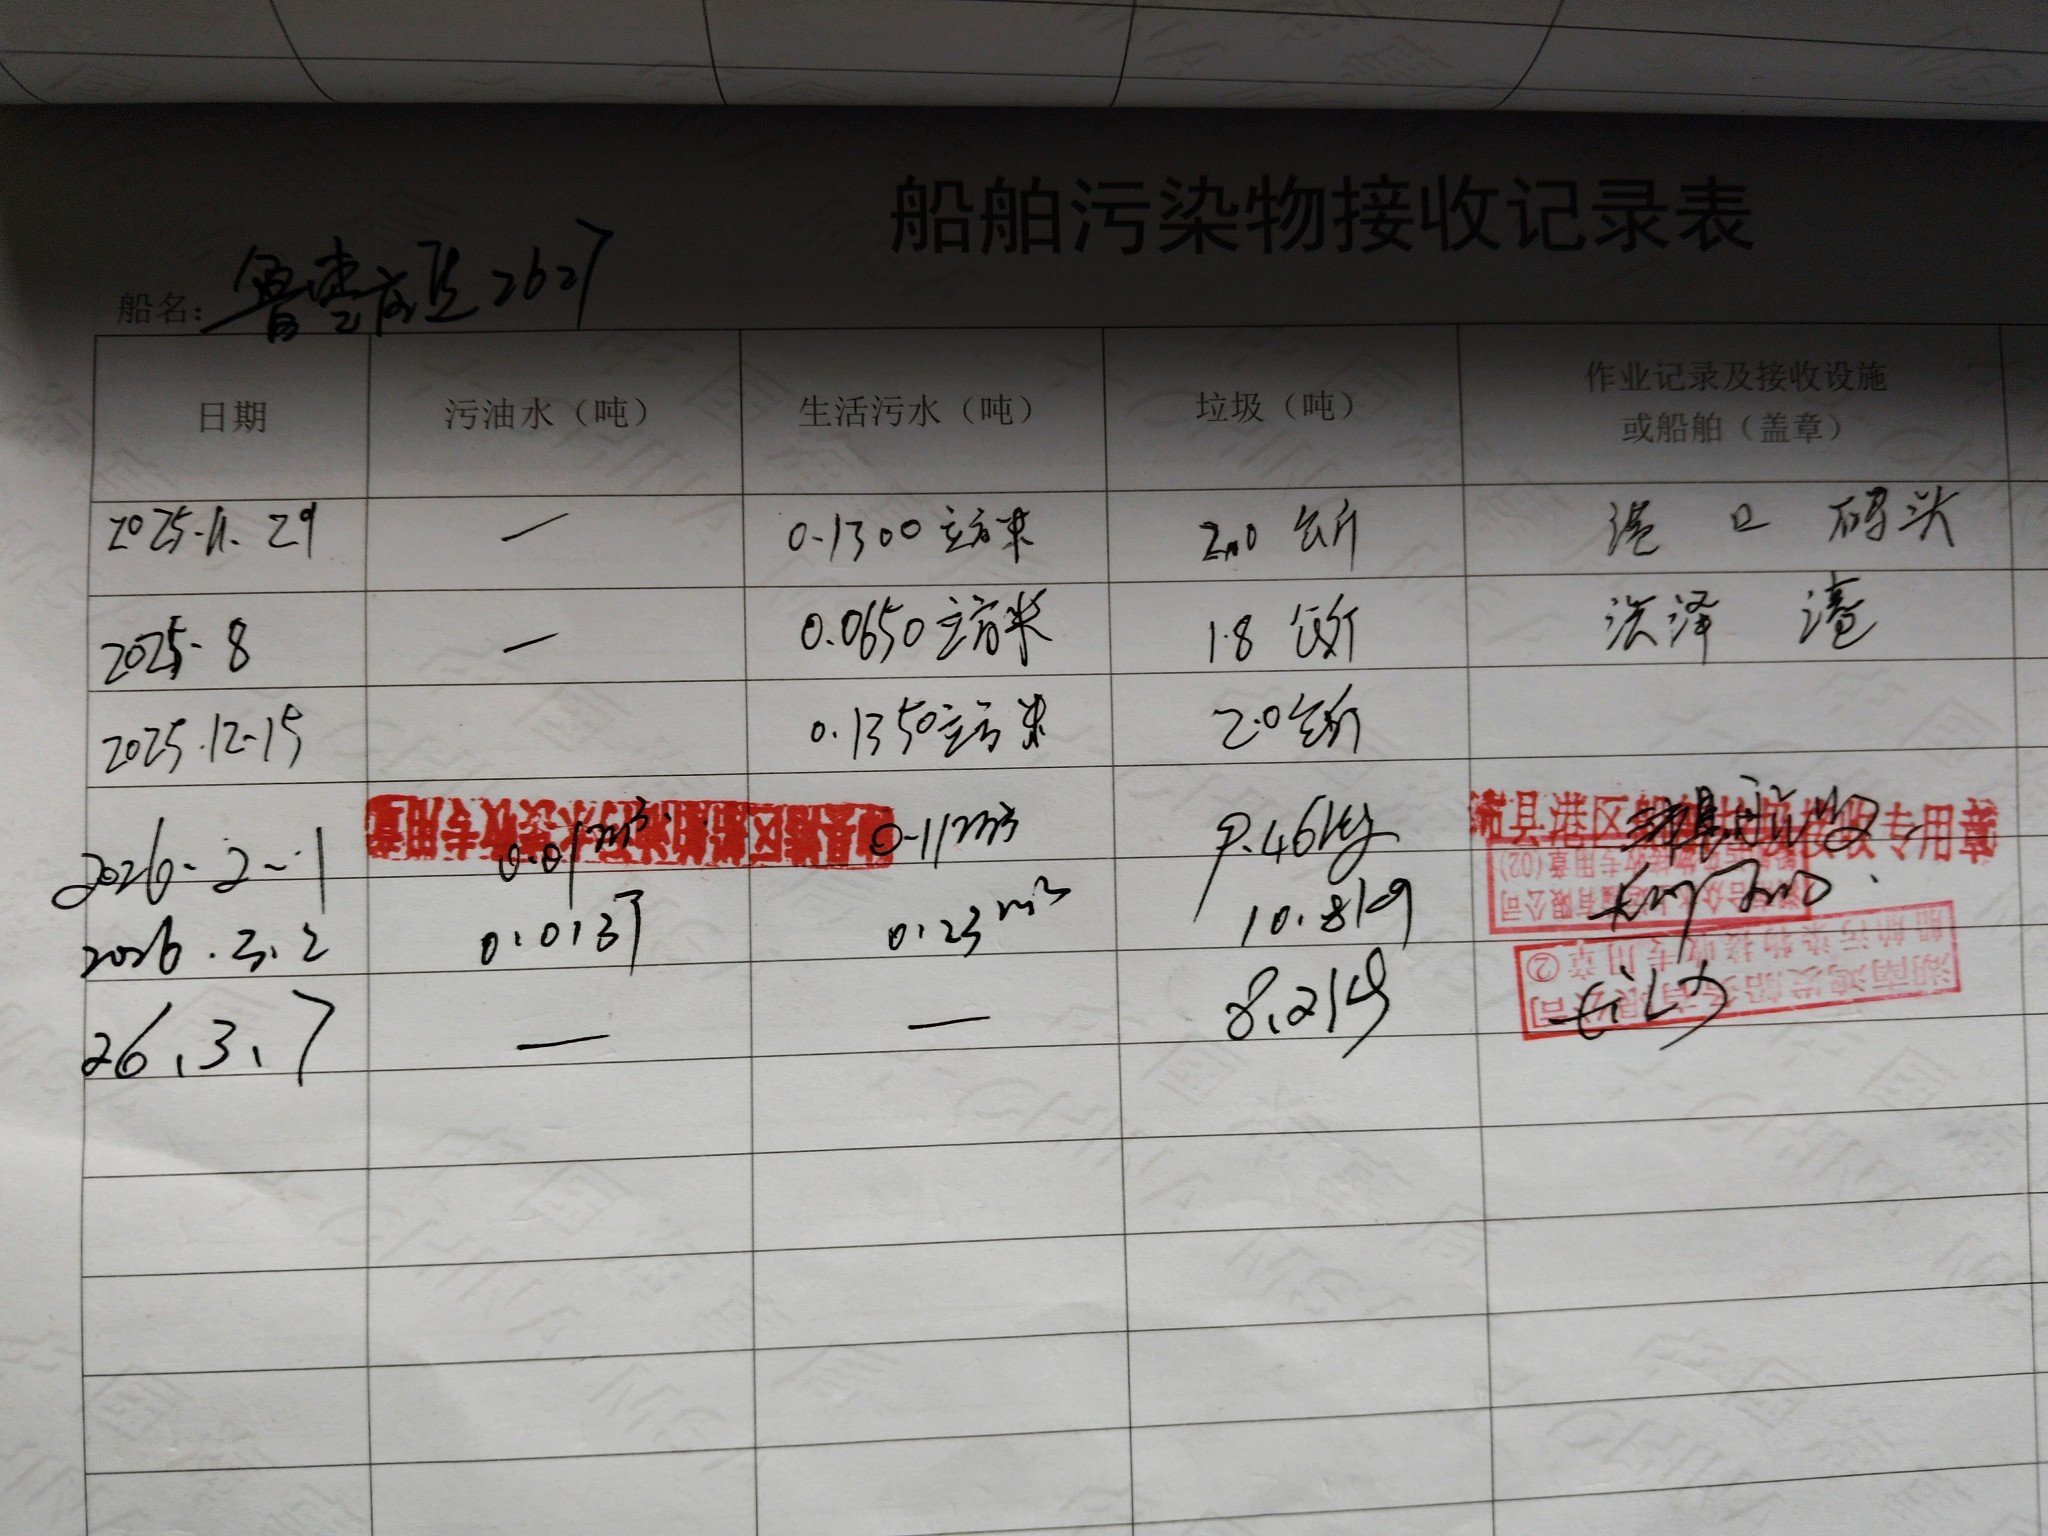 船舶污染物接收记录表
船名：鲁 2627
日期 污油水（吨） 生活污水（吨） 垃圾（吨） 作业记录及接收设施
或船舶（盖章）
2025.11.29 — 0.1300立方米 2.0公斤 港口码头
2025.8 — 0.0650立方米 1.8公斤 洪泽港
2025.12.15 0.1350立方米 2.0公斤
2026.2.1 0.01m³ 0.11m³ 9.46kg 县港区 接收专用章
2026.3.2 0.0137 0.23m³ 10.8kg
26.3.7 — — 8.2kg
湖南鸿发船务有限公司
船舶污染物接收专用章②